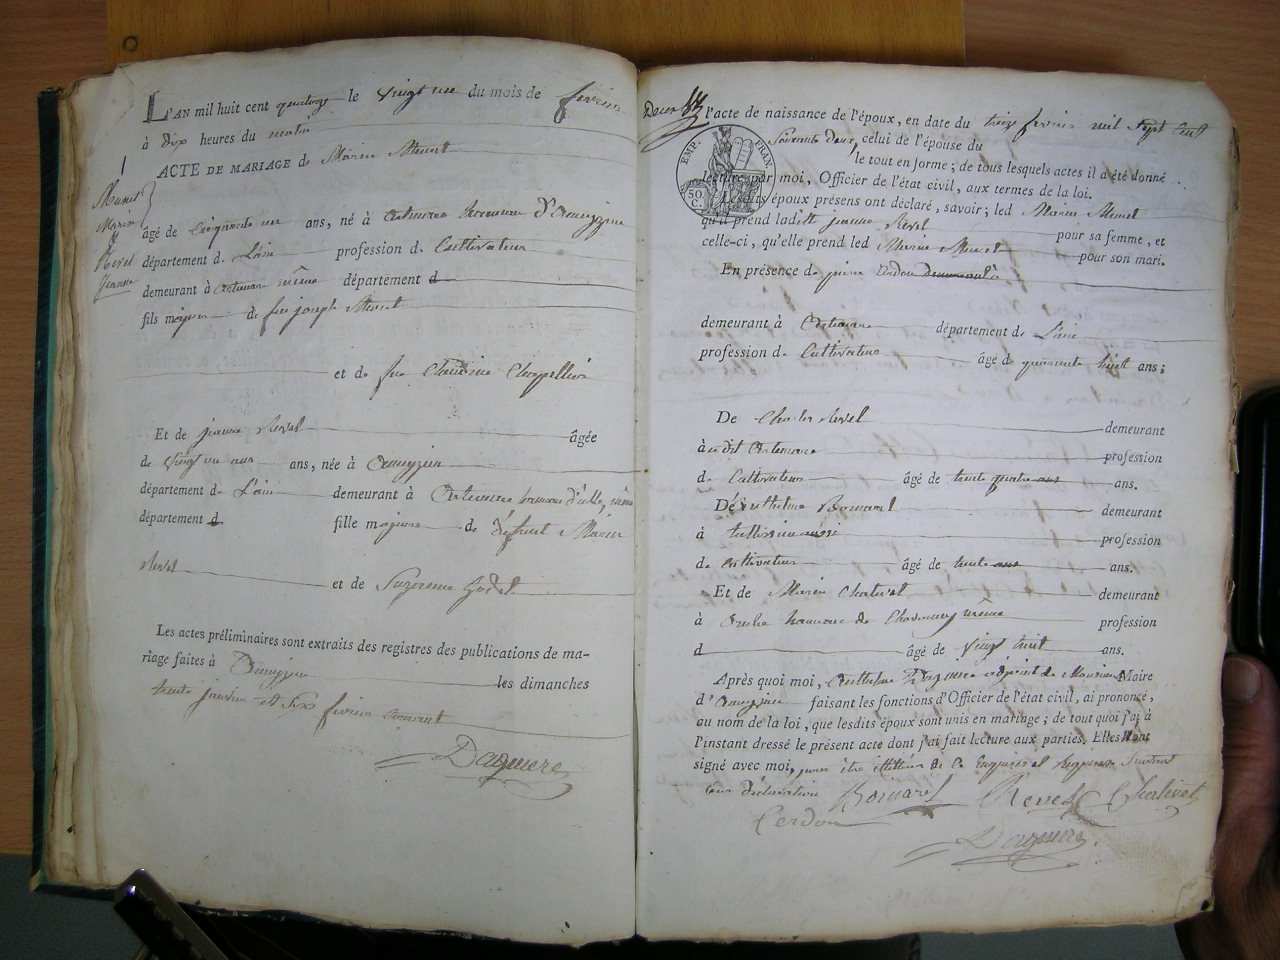 L'AN mil huit cent quatorze le vingt un du mois de fevrier
à dix heures du matin
ACTE DE MARIAGE de Marin Munet
Munet
Marin
&
Revel
Jeanne
âgé de cinquante un ans, né à artemare
département de L'ain profession de Cultivateur
demeurant à artemare même département d
fils majeur de feu joseph Munet
et de feue Claudine Chapellier
Et de jeanne Revel âgée
de vingt un ans, née à
département de L'ain demeurant à artemare
département d fille majeure de défunt Marin
Revel et de Suzanne
Les actes préliminaires sont extraits des registres des publications de ma-
riage faites à les dimanches
trente janvier et six fevrier courant
Daguere
l'acte de naissance de l'époux, en date du treize fevrier mil sept cent
soixante deux, celui de l'épouse du
le tout en forme; de tous lesquels actes il a été donné
EMP. FRAN.
50 C.
lecture par moi, Officier de l'état civil, aux termes de la loi.
Lesdits époux présens ont déclaré, savoir; led Marin Munet
qu'il prend ladite jeanne Revel pour sa femme, et
celle-ci, qu'elle prend led Marin Munet pour son mari.
En présence de pierre
demeurant à Artemare département de L'ain
profession de Cultivateur âgé de quarante huit ans;
De Charles Revel demeurant
à dit Artemare profession
de Cultivateur âgé de trente quatre ans ans.
De Anthelme Boinard demeurant
à profession
de cultivateur âgé de trente ans ans.
Et de Marin Chalivet demeurant
à hameau de même profession
d âgé de vingt huit ans.
Après quoi moi, Anthelme Daguere adjoint de Monsieur Maire
d' faisant les fonctions d'Officier de l'état civil, ai prononcé,
au nom de la loi, que lesdits époux sont unis en mariage; de tout quoi j'ai à
l'instant dressé le présent acte dont j'ai fait lecture aux parties. Elles ont
signé avec moi, de ce enquises et requises suivant
leur déclaration Boinard Revel Chalivet
Cerdon
Daguere